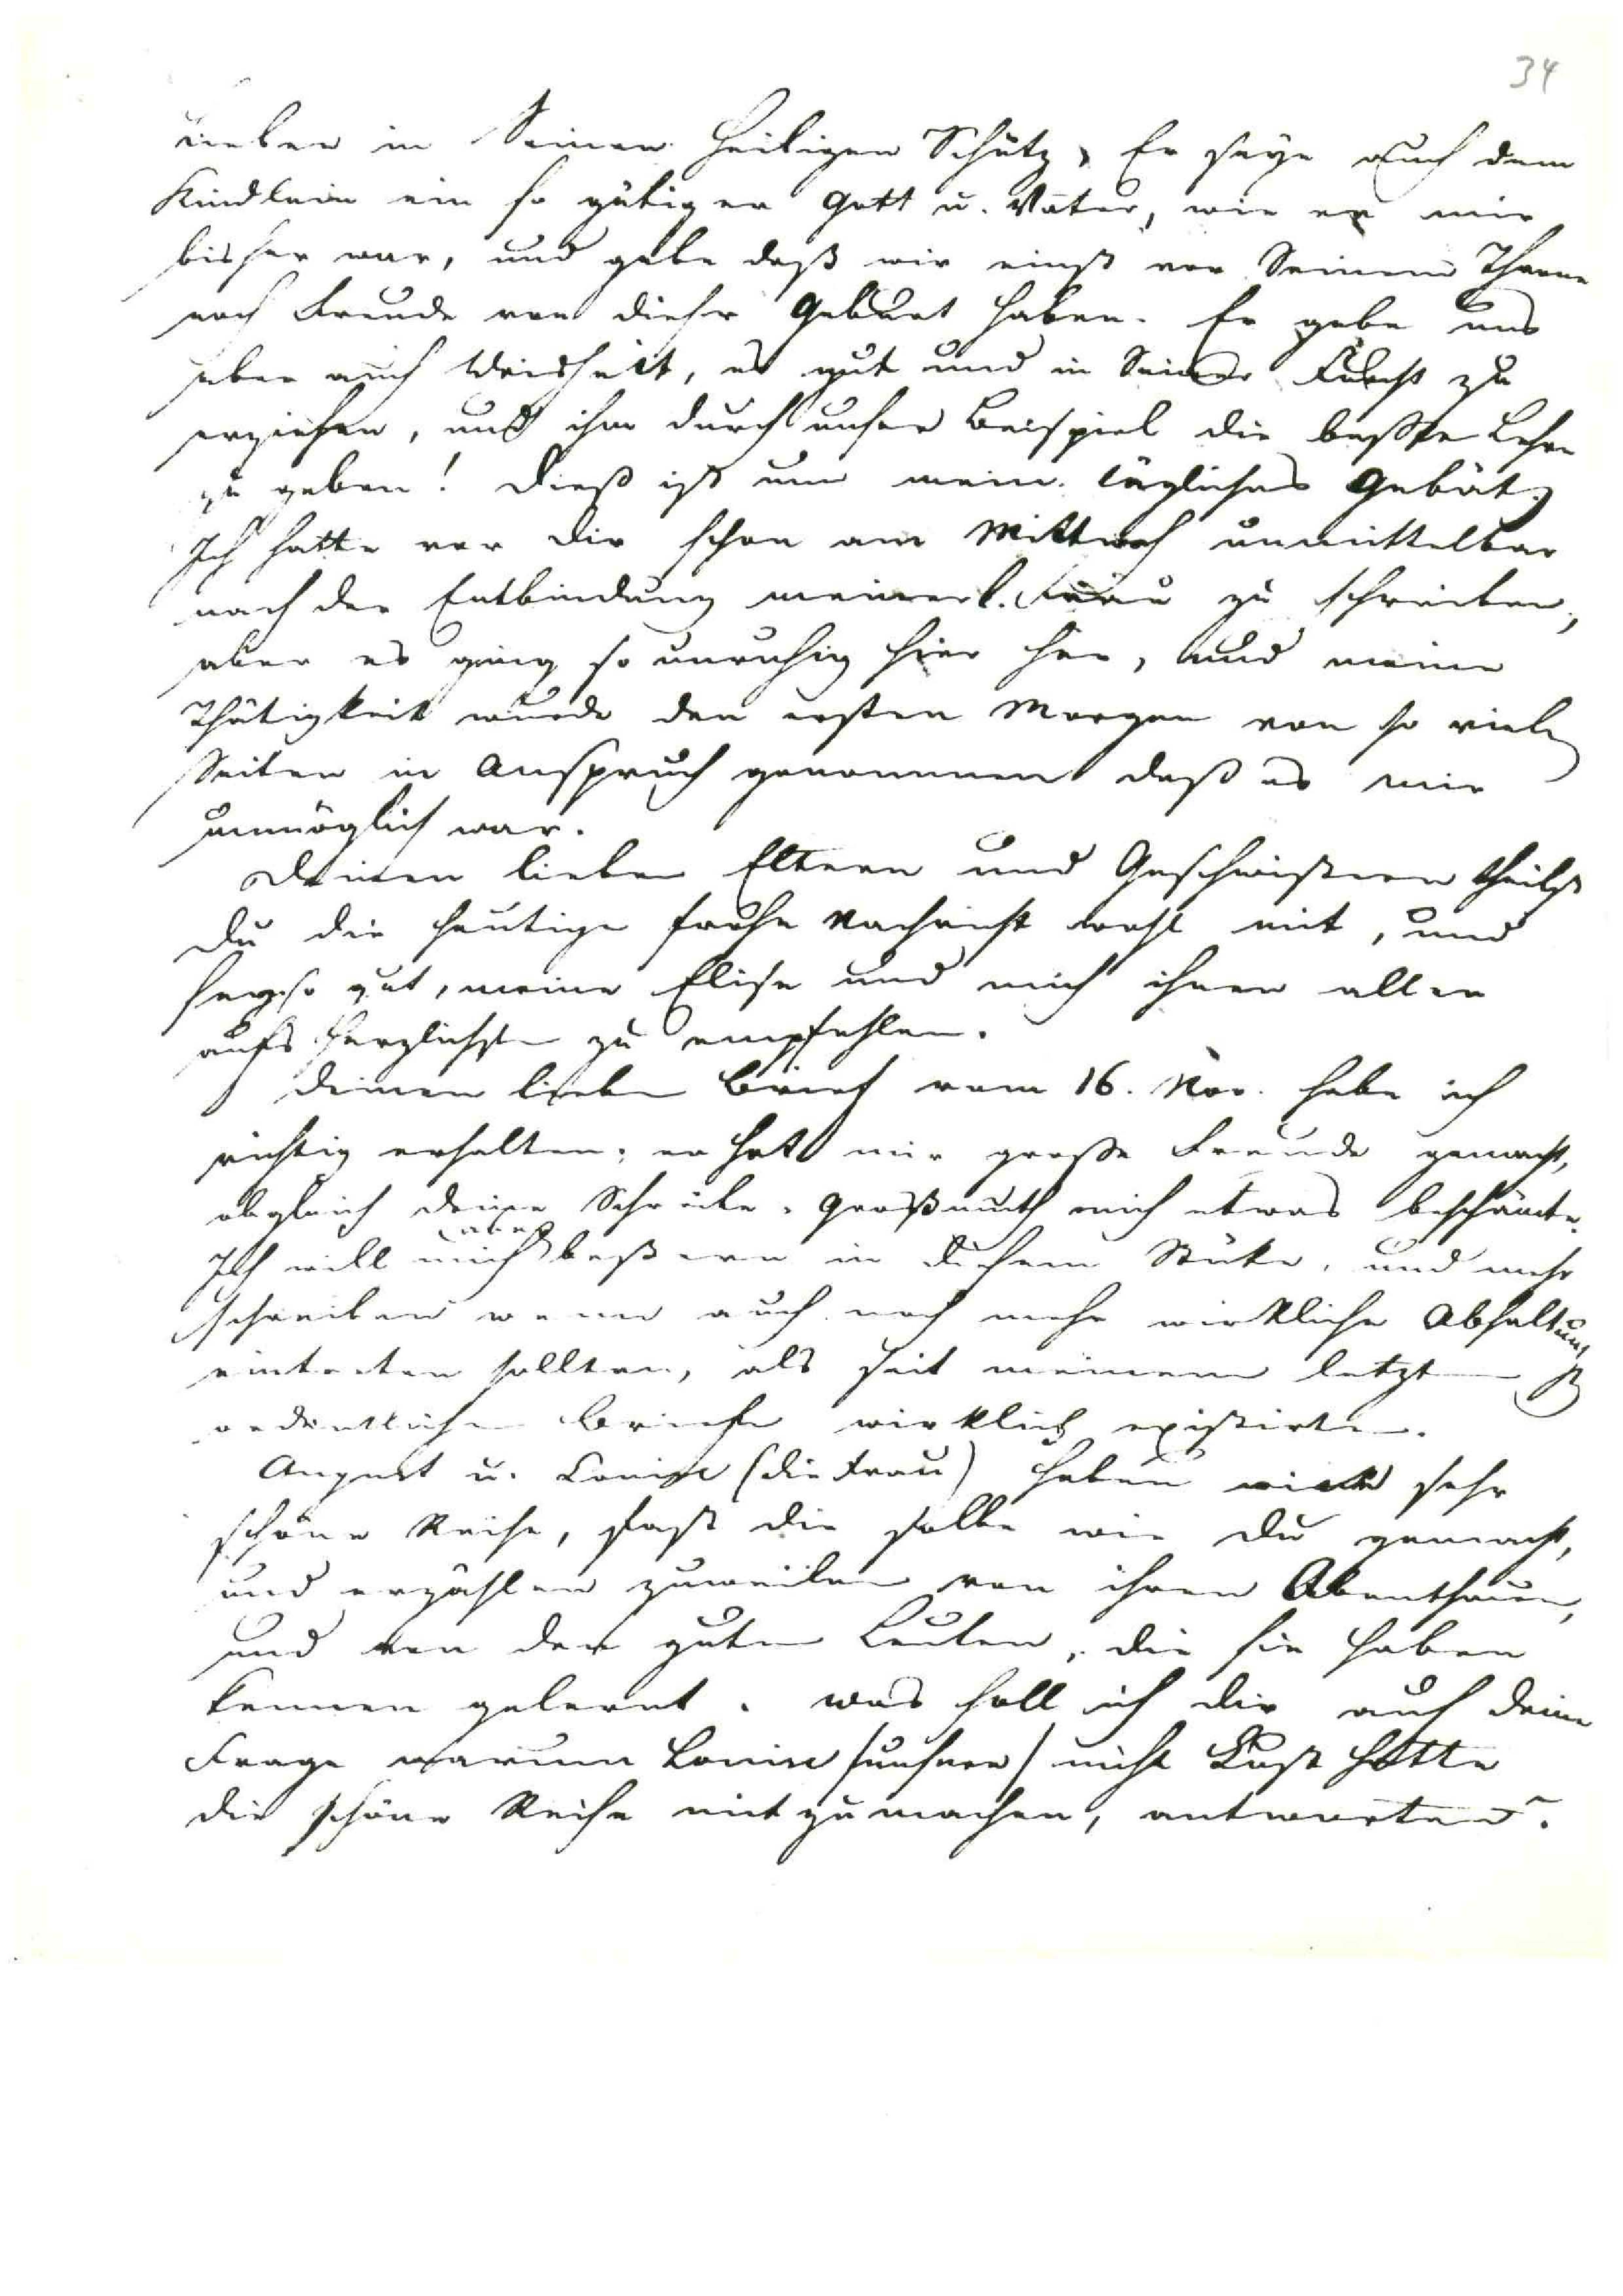 34
lieben in Seinen heiligen Schutz, Er seye auch dem
Kindlein ein so gütiger Gott u. Vater, wie er mir
bisher war, und gebe daß wir einst vor Seinem Throne
noch Freude von dieser Geburt haben. Er gebe uns
aber auch Weisheit, es gut und in Seiner Furcht zu
erziehen, und ihm durch unser Beispiel die beßte Lehre
zu geben! Dieß ist nun mein tägliches Gebät.
Ich hatte vor dir schon am Mittwoch unmittelbar
nach der Entbindung meiner l. Frau zu schreiben,
aber es ging so unruhig hier her, und meine
Thätigkeit wurde den ersten Morgen von so vielen
Seiten in Anspruch genommen daß es mir
unmöglich war.
Deinen lieben Eltern und Geschwistern theilst
Du die heutige frohe Nachricht wohl mit, und
sey so gut, meine Elise und mich ihnen allen
aufs herzlichste zu empfehlen.
Deinen lieben Brief vom 16. Nov. habe ich
richtig erhalten; er hat mir große Freude gemacht,
obgleich deine Schreibe-Großmuth mich etwas beschämte.
Ich will mich aber beßern in diesem Stüke, und mehr
schreiben wenn auch noch mehr wirkliche Abhaltung
eintreten sollten, als seit meinem letzten
ordentlichen Briefe wirklich existirten.
August u. Louise (die Frau) haben eine sehr
schöne Reise, fast die selbe wie Du gemacht,
und erzählen zuweilen von ihren Abentheuern,
und von den guten Leuten, die sie haben
kennen gelernt. Was soll ich dir auf deine
Frage warum Louise (unsere) nicht Lust hatte
die schöne Reise mitzumachen, antworten?